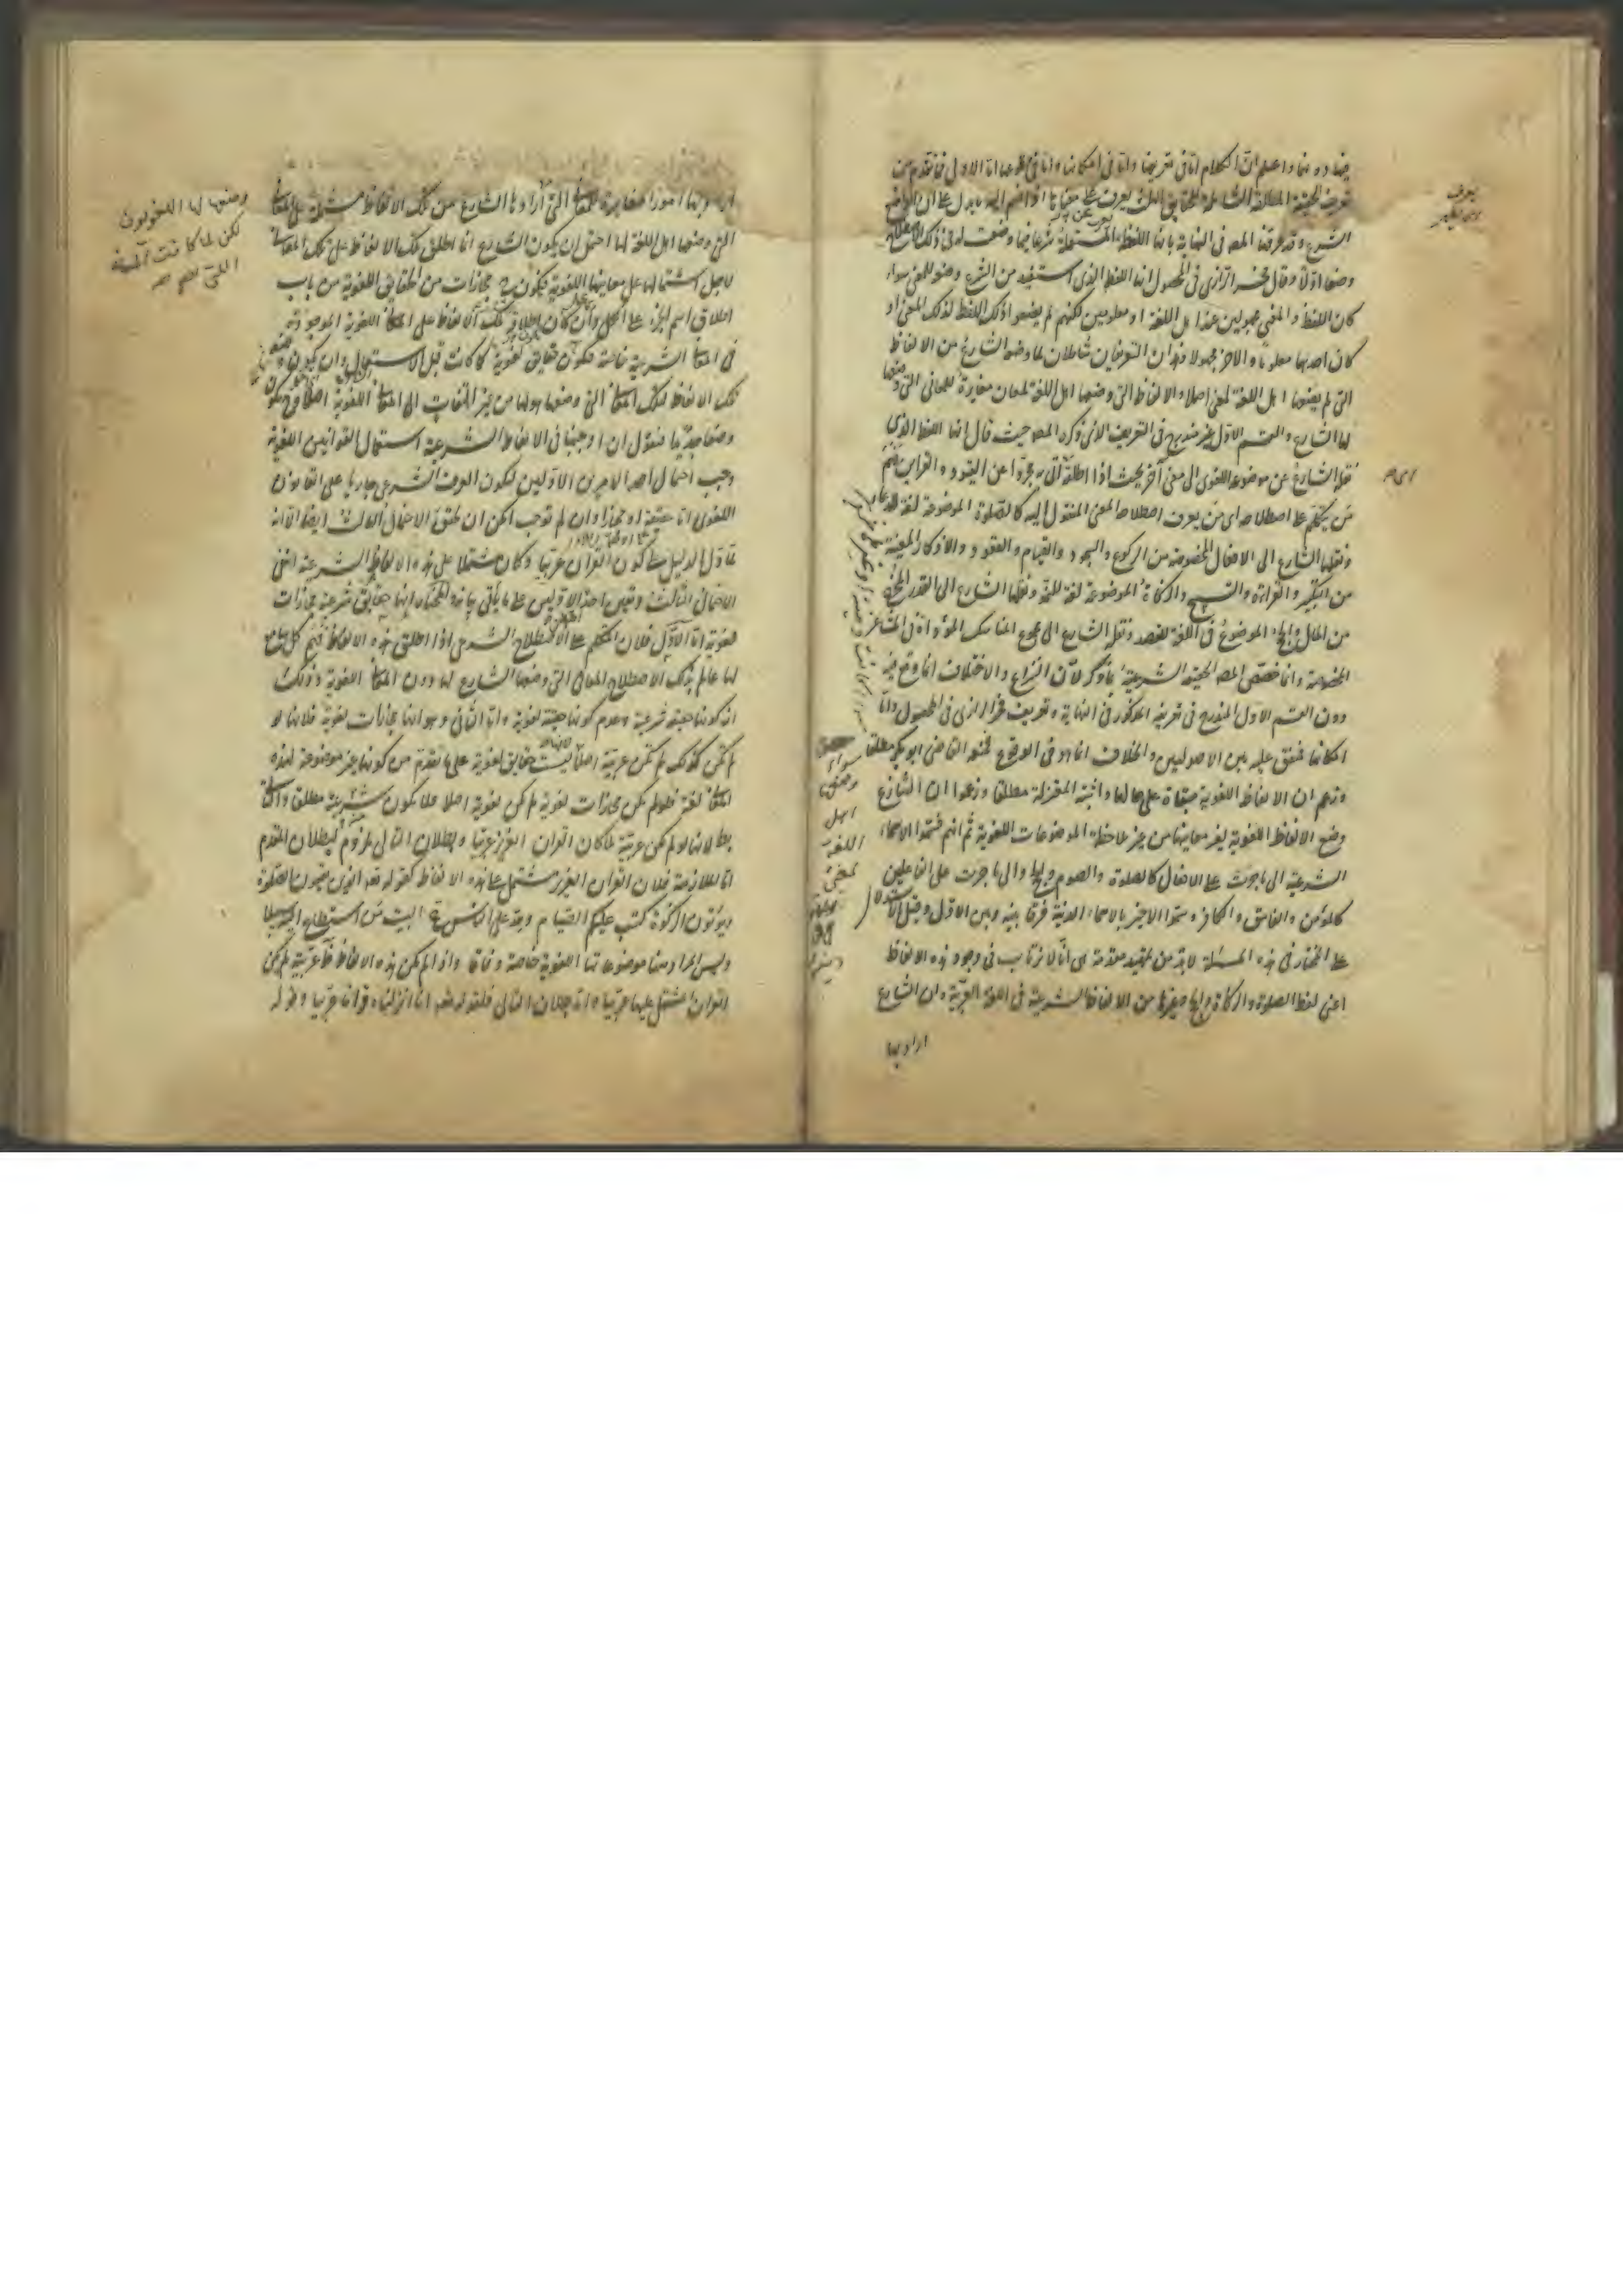 واعلم ان الكلام اما في تعريفها واما في امكانها واما في وقوعها اما الاول فما تقدم من
تعريف الحقيقة المطلقة الشاملة للحقايق الثلث يعرف
الشرع وقد عرفها المصه في النهاية بانها اللفظة المستعملة شرعا فيما وضعت له في ذلك الاصطلاح
وضعا اولا وقال فخر الرازي في المحصول انها اللفظ الذي استفيد من الشرع وضعه للمعنى سواء
كان اللفظ والمعنى مجهولين عند اهل اللغة او معلومين لكنهم لم يضعوا ذلك اللفظ لذلك المعنى او
كان احدهما معلوما والاخر مجهولا فهذان التعريفان شاملان لما وضعه الشارع من الالفاظ
التي لم يضعها اهل اللغة لمعنى اصلا والالفاظ التي وضعها اهل اللغة لمعان مغايرة للمعاني التي وضعها
لها الشارع والقسم الاول غير مندرج في التعريف الذي ذكره المصه حيث قال انها اللفظ الذي
نقله الشارع عن موضوعه اللغوي الى معنى آخر بحيث اذا اطلقه مجردا عن القيود والقراين فهم
من يتكلم على اصطلاحه اي من يعرف اصطلاحه المعنى المنقول اليه كالصلوة الموضوعة لغة للدعاء
ونقلها الشارع الى الافعال المخصوصة من الركوع والسجود والقيام والقعود والاذكار المعينة
من التكبير والقراءة والتسبيح والزكاة الموضوعة لغة للنمو ونقلها الشارع الى القدر المخرج
من المال والحج الموضوع في اللغة للقصد ونقله الشارع الى مجموع المناسك المؤداة في المشاعر
المخصوصة وانما خصص المصه الحقيقة الشرعية بما ذكر لان النزاع والاختلاف انما وقع فيه
دون القسم الاول المندرج في تعريفه المذكور في النهاية وتعريف فخر الرازي في المحصول واما
امكانها فمتفق عليه بين الاصوليين والخلاف انما هو في الوقوع فمنعه القاضي ابو بكر مطلقا
وزعم ان الالفاظ اللغوية مبقاة على حالها واثبته المعتزلة مطلقا وزعموا ان الشارع
وضع الالفاظ اللغوية لغير معانيها من غير ملاحظة الموضوعات اللغوية ثم انهم قسموا الاسماء
الشرعية الى ما جرت على الافعال كالصلوة والصوم والحج والى ما جرت على الفاعلين
كالمؤمن والفاسق والكافر وسموا الاخير بالاسماء الدينية فرقا بينه وبين الاول وقبل الاستدلال
على المختار في هذه المسئلة لا بد من تمهيد مقدمة هي انا لا نرتاب في وجود هذه الالفاظ
اعني لفظ الصلوة والزكاة والحج وغيرها من الالفاظ الشرعية في اللغة العربية وان الشارع
اراد بها
يعرف
سواء
وضعه
اهل
اللغة
لمعنى
اراد بها امورا مغايرة للمعاني التي ارادها الشارع من تلك الالفاظ مشتملة على المعاني
التي وضعها اهل اللغة لها احتمل ان يكون الشارع انما اطلق تلك الالفاظ على تلك المعاني
لاجل اشتمالها على معانيها اللغوية فيكون ح مجازات من الحقايق اللغوية من باب
اطلاق اسم الجزء على الكل وان كان اطلاق تلك الالفاظ على المعاني اللغوية الموجودة
في المعاني الشرعية خاصة فيكون حقايق لغوية كما كانت قبل الاستعمال وان يكون
تلك الالفاظ لتلك المعاني التي وضعها هو لها من غير التفات الى المعاني اللغوية اصلا فيكون
وضعا جديدا فنقول ان اوجبنا في الالفاظ الشرعية استعمال القوانين اللغوية
وجب احتمال احد الامرين الاولين ليكون العرف الشرعي جاريا على القانون
اللغوي اما حقيقة او مجازا وان لم نوجب امكن ان يتحقق الاحتمال الثالث ايضا الا انه
لما دل الدليل على كون القران عربيا وكان مشتملا على هذه الالفاظ الشرعية انتفى
الاحتمال الثالث وتعين احد الاولين على ما يأتي بيانه المختار انها حقايق شرعية مجازات
لغوية اما الاول فلان المتكلم على الاصطلاح الشرعي اذا اطلق هذه الالفاظ فهم كل سامع
لها عالم بذلك الاصطلاح المعاني التي وضعها الشارع لها دون المعاني اللغوية وذلك
اية كونها حقيقة شرعية وعدم كونها حقيقة لغوية واما الثاني وهو انها مجازات لغوية فلانها لو
لم تكن كذلك لم تكن عربية اصلا لانها ليست حقايق لغوية على ما تقدم من كونها غير موضوعة لهذه
المعاني لغة فلو لم تكن مجازات لغوية لم تكن لغوية اصلا فلا يكون عربية مطلقا والتالي
بط لانها لو لم تكن عربية لما كان القران العزيز عربيا وبطلان التالي ملزوم لبطلان المقدم
اما الملازمة فلان القران العزيز مشتمل على هذه الالفاظ كقوله تعه الذين يقيمون الصلوة
ويؤتون الزكوة كتب عليكم الصيام ولله على الناس حج البيت من استطاع اليه سبيلا
وليس المراد منها موضوعاتها اللغوية خاصة وفاقا واذا لم تكن هذه الالفاظ عربية لم يكن
القران المشتمل عليها عربيا واما بطلان التالي فلقوله تعه انا انزلناه قرانا عربيا وقوله
وضعها لها اللغويون
لكن لما كانت